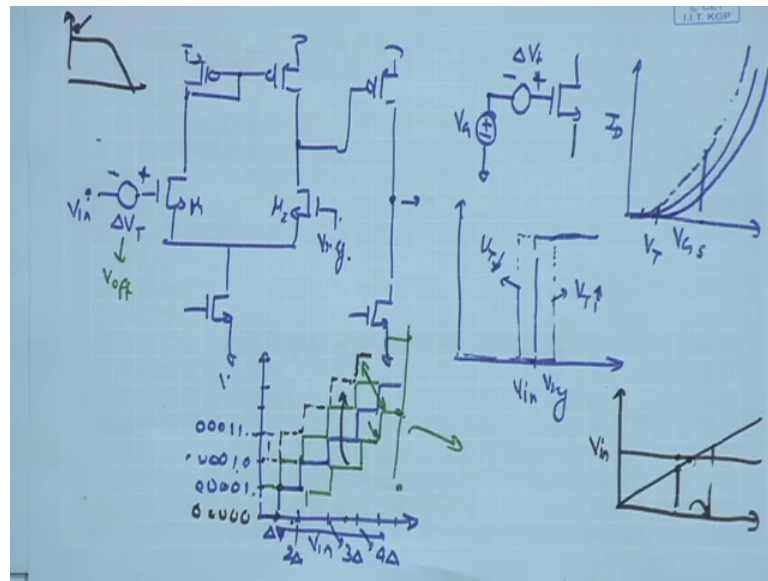 I.I.T. KGP
ΔV_t
- +
V_G
I_D
V_T V_GS
- +
V_in
ΔV_T
V_off
M_1
M_2
V_T↑
V_in
V_in
00011.
00010
00001.
00000
Δ
2Δ
V_in
3Δ
4Δ